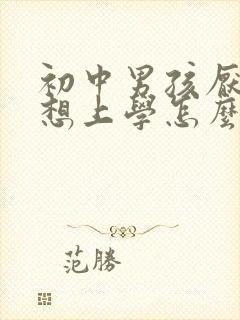 初中男孩厭
想上學怎麼
范勝